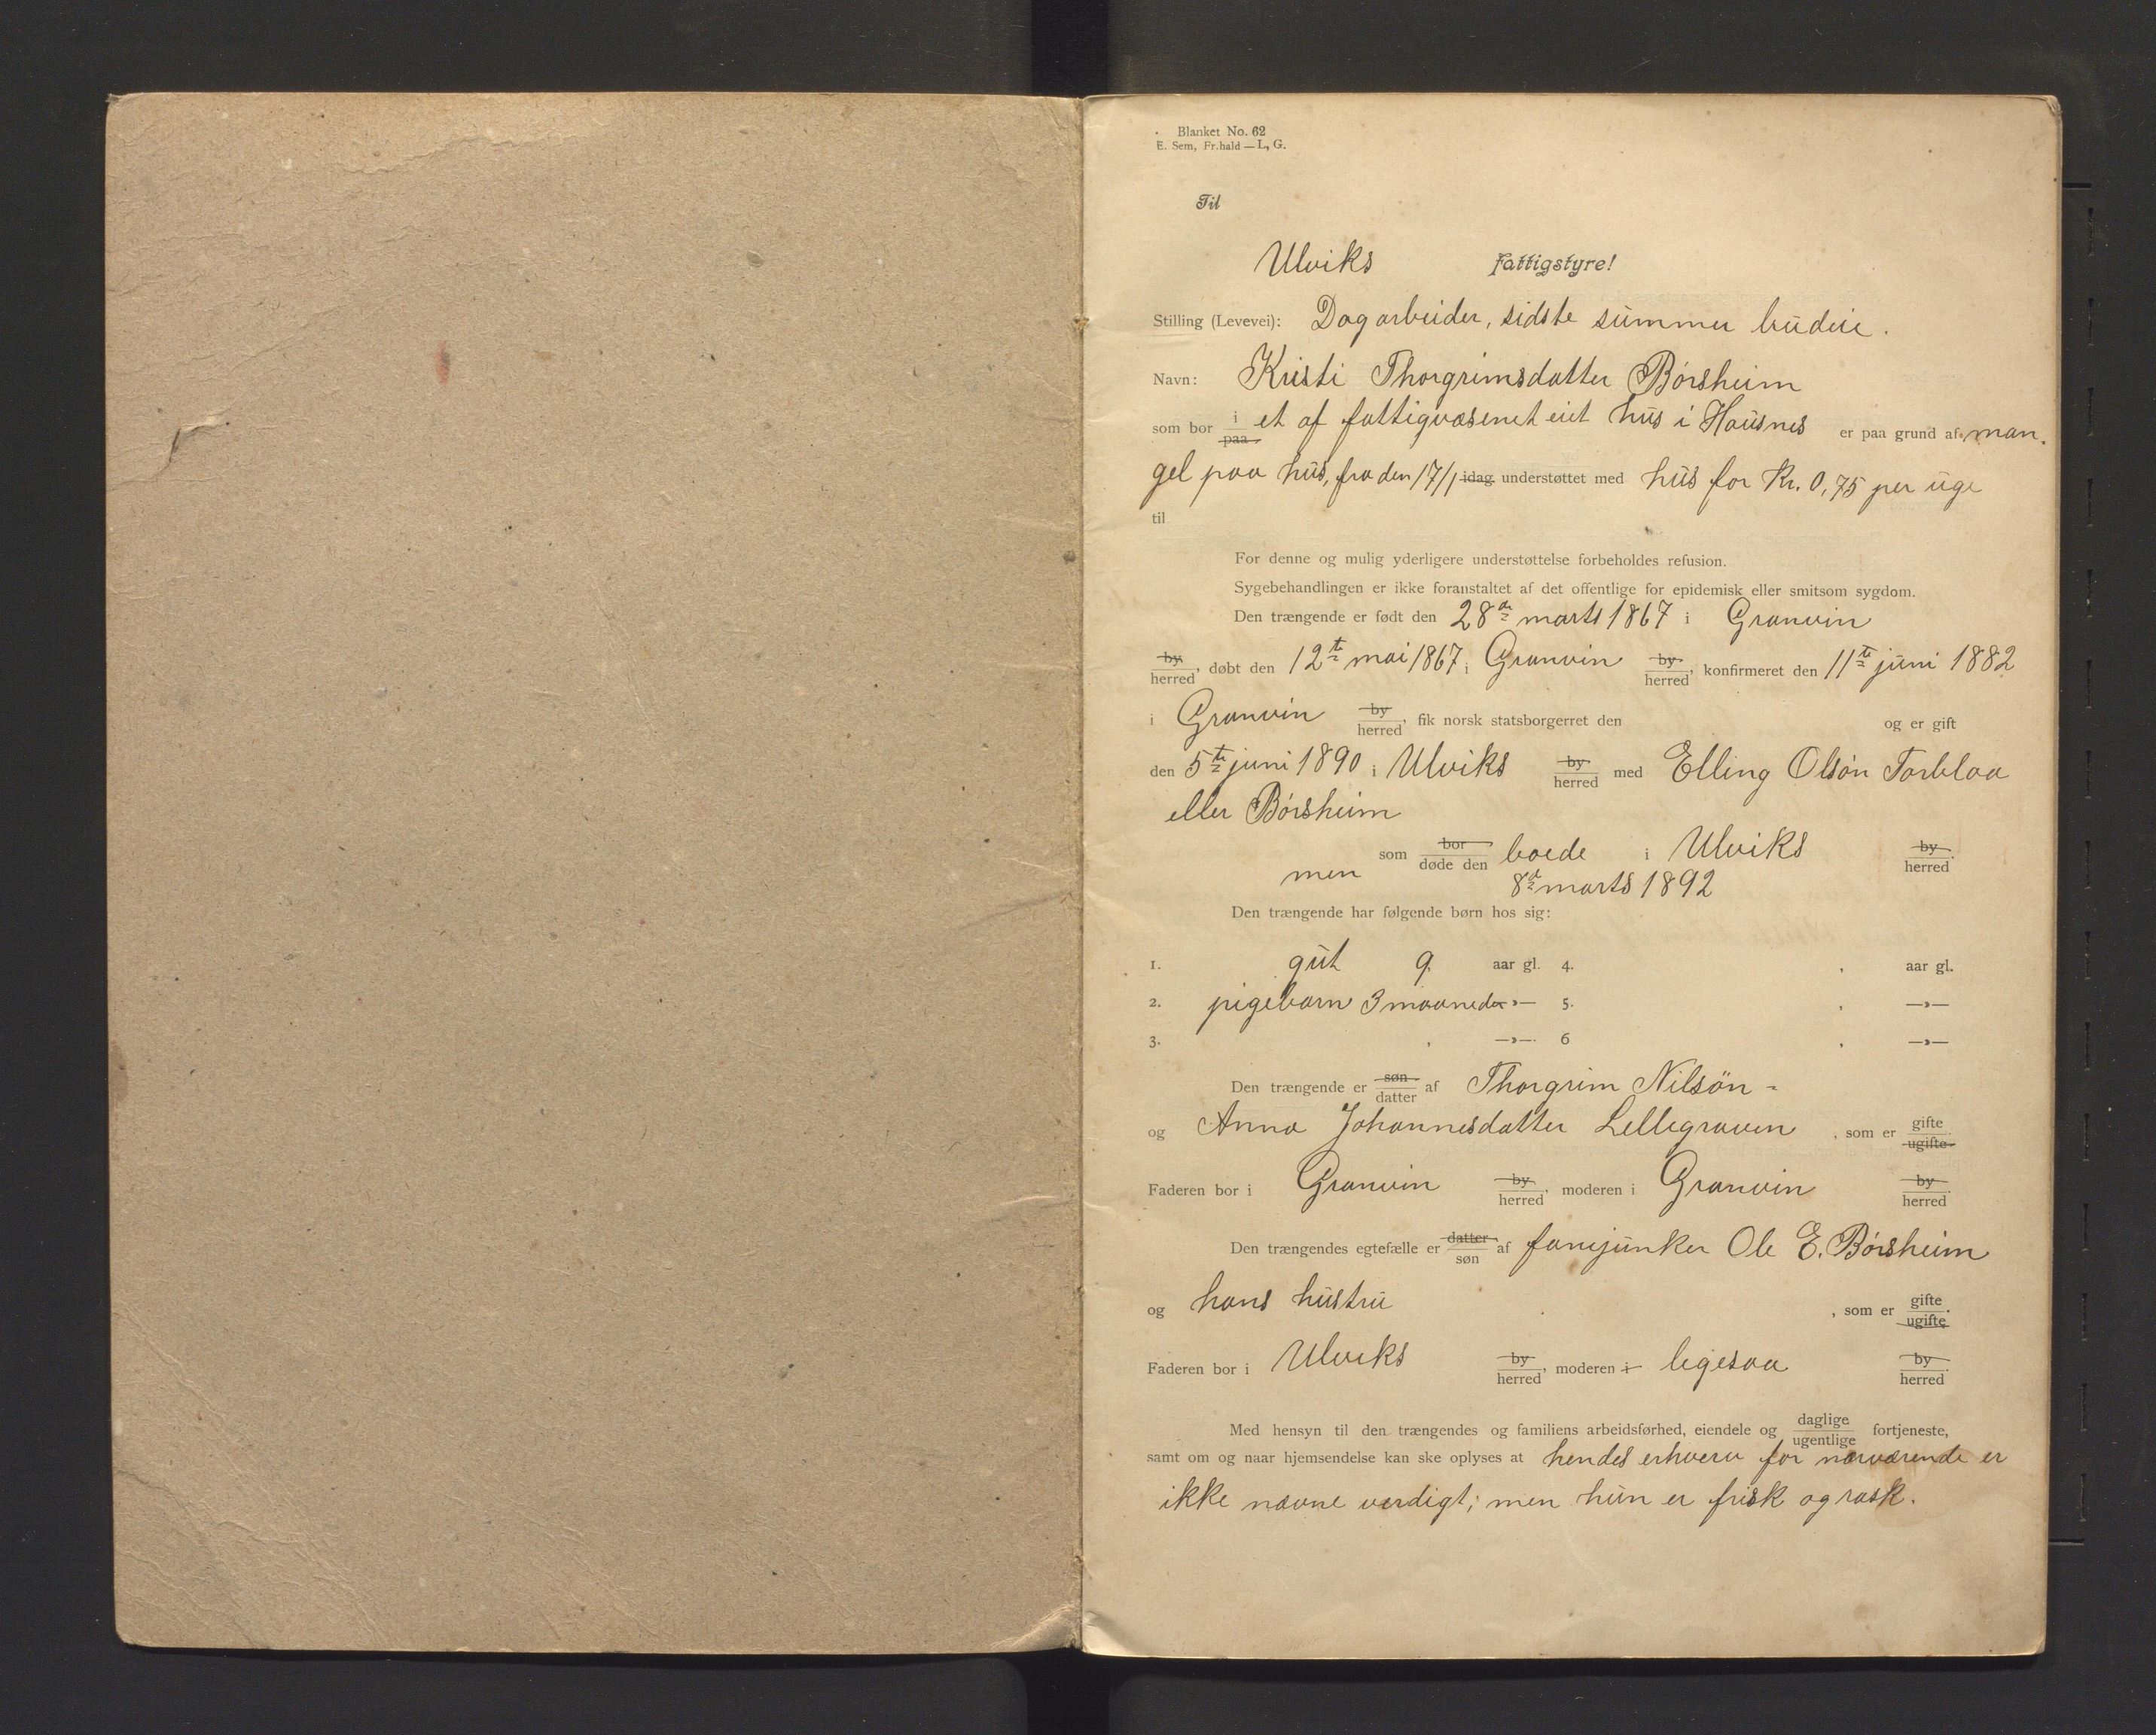 Blanket No. 62
E. Sem, Fr.hald — L, G.
Til
Ulviks Fattigstyre!
Stilling (Levevei): Dagarbeider, sidste summer budeie.
Navn: Kristi Thorgrimsdatter Børsheim
som bor i paa et af fattigvæsenet eiet hus i Hausnes er paa grund af man-
gel paa hus, fra den 17/1 idag understøttet med hus for Kr. 0,75 per uge
til
For denne og mulig yderligere understøttelse forbeholdes refusion.
Sygebehandlingen er ikke foranstaltet af det offentlige for epidemisk eller smitsom sygdom.
Den trængende er født den 28de marts 1867 i Granvin
by herred, døbt den 12te mai 1867 i Granvin by herred, konfirmeret den 11te juni 1882
i Granvin by herred, fik norsk statsborgerret den og er gift
den 5te juni 1890 i Ulviks by herred med Elling Olsøn Torblaa
eller Børsheim
som bor døde den boede i Ulviks by herred.
men 8de marts 1892
Den trængende har følgende børn hos sig:
1. gut 9 aar gl. 4. , aar gl.
2. pigebarn 3 maaneder —»— 5. , —»—
3. , —»— 6 , —»—
Den trængende er søn datter af Thorgrim Nilsøn -
og Anna Johannesdatter Lellegraven , som er gifte ugifte.
Faderen bor i Granvin by herred, moderen i Granvin by herred.
Den trængendes egtefælle er datter søn af fanejunker Ole E. Børsheim
og hans hustru , som er gifte ugifte.
Faderen bor i Ulviks by herred, moderen i ligesaa by herred.
Med hensyn til den trængendes og familiens arbeidsførhed, eiendele og daglige ugentlige fortjeneste,
samt om og naar hjemsendelse kan ske oplyses at hendes erhverv for nærværende er
ikke nævne verdigt; men hun er frisk og rask.